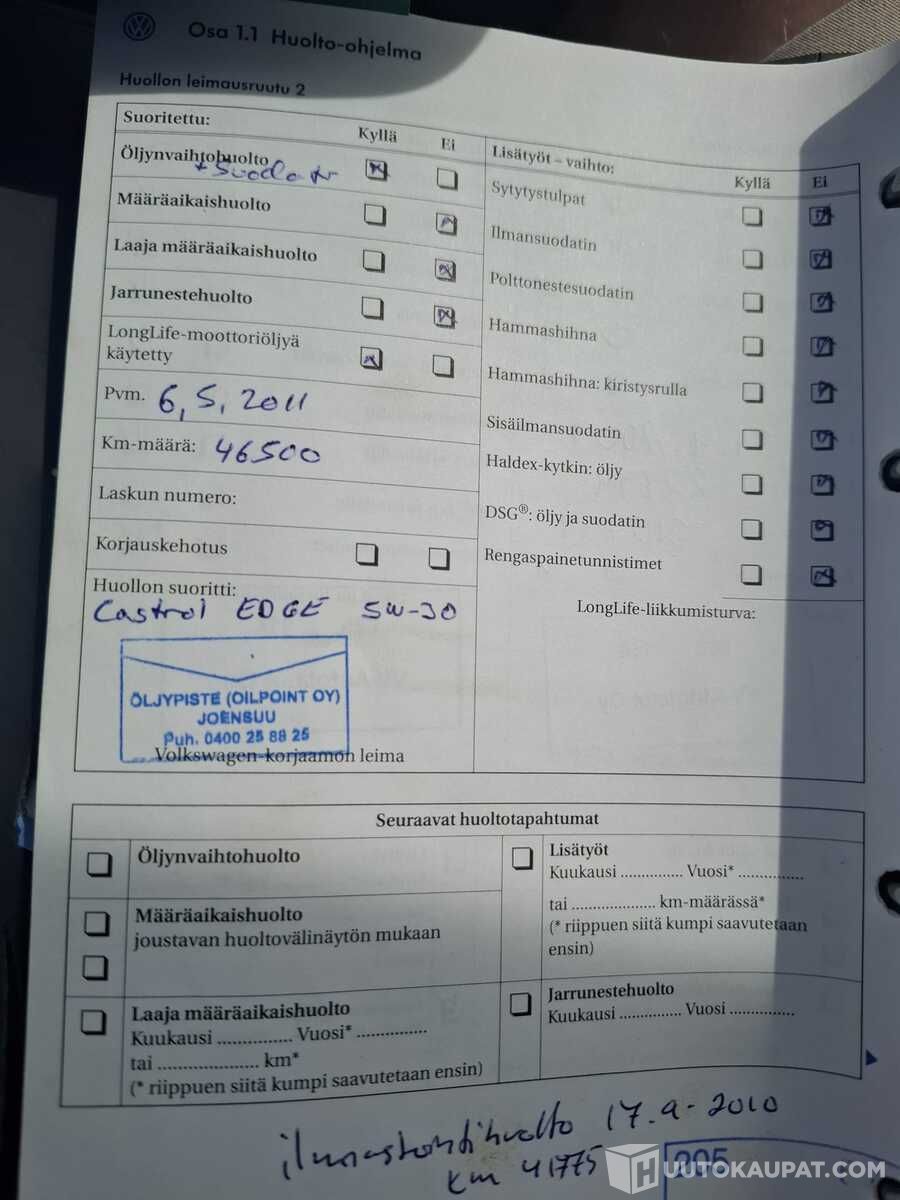 Osa 1.1 Huolto-ohjelma
Huollon leimausruutu 2
Suoritettu:
Kyllä Ei
Öljynvaihtohuolto
+ Suodatin
Määräaikaishuolto
Laaja määräaikaishuolto
Jarrunestehuolto
LongLife-moottoriöljyä
käytetty
Pvm. 6,5,2011
Km-määrä: 46500
Laskun numero:
Korjauskehotus
Huollon suoritti:
Castrol EDGE 5W-30
ÖLJYPISTE (OILPOINT OY)
JOENSUU
Puh. 0400 25 88 25
Volkswagen-korjaamon leima
Lisätyöt – vaihto:
Kyllä Ei
Sytytystulpat
Ilmansuodatin
Polttonestesuodatin
Hammashihna
Hammashihna: kiristysrulla
Sisäilmansuodatin
Haldex-kytkin: öljy
DSG®: öljy ja suodatin
Rengaspainetunnistimet
LongLife-liikkumisturva:
Seuraavat huoltotapahtumat
Öljynvaihtohuolto
Määräaikaishuolto
joustavan huoltovälinäytön mukaan
Laaja määräaikaishuolto
Kuukausi ............... Vuosi* ..............
tai ..................... km*
(* riippuen siitä kumpi saavutetaan ensin)
Lisätyöt
Kuukausi ............... Vuosi* ...............
tai .................... km-määrässä*
(* riippuen siitä kumpi saavutetaan
ensin)
Jarrunestehuolto
Kuukausi ............... Vuosi ...............
ilmastointihuolto 17.9-2010
km 41775
205
HUUTOKAUPAT.COM